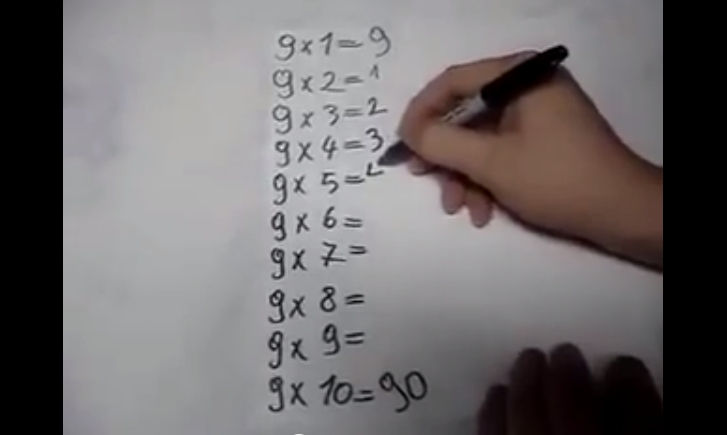 9 x 1 = 9
9 x 2 = 1
9 x 3 = 2
9 x 4 = 3
9 x 5 =
9 x 6 =
9 x 7 =
9 x 8 =
9 x 9 =
9 x 10 = 90